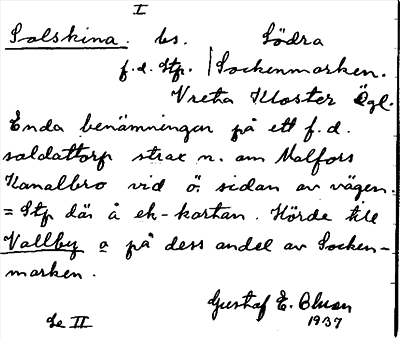 I
Solskina. bs. Södra
f.d. Stp. | Sockenmarken.
Vreta Kloster Ögl.
Enda benämningen på ett f.d.
soldattorp strax n. om Malfors
Kanalbro vid ö. sidan av vägen.
= Stp där å ek-kartan. Hörde till
Vallby o på dess andel av Socken-
marken.
Gustaf E. Bluon
1937
Se II